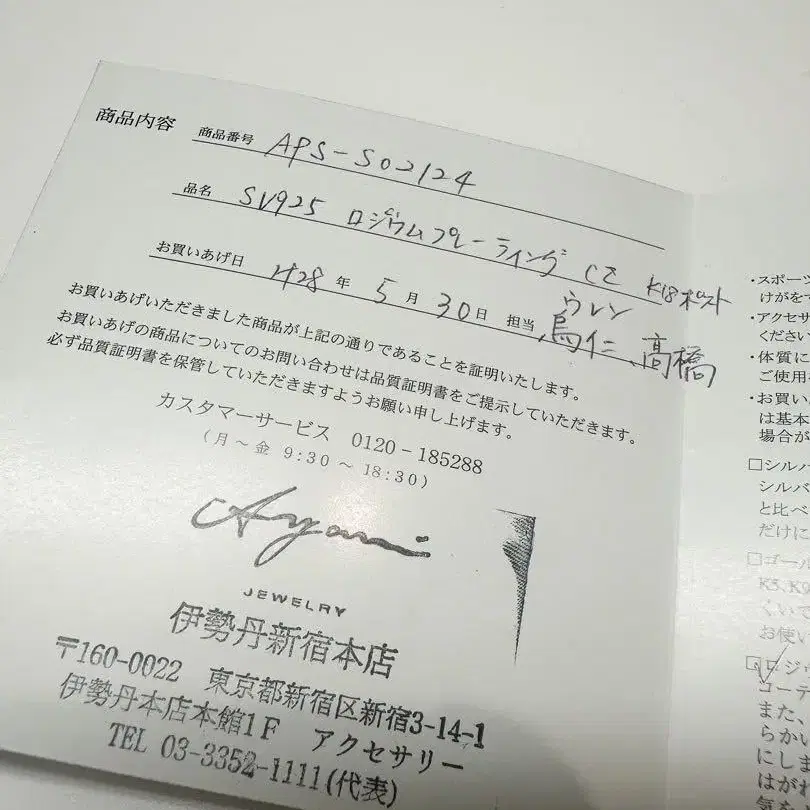 商品内容
商品番号 APS-S02124
品名 SV925 ロジウムプレーティング CZ K18ポスト
お買いあげ日 H28年5月30日 担当 烏仁 ウレン 高橋
お買いあげいただきました商品が上記の通りであることを証明いたします。
お買いあげの商品についてのお問い合わせは品質証明書をご提示していただきます。
必ず品質証明書を保管していただきますようお願い申し上げます。
カスタマーサービス 0120-185288
(月～金 9:30～18:30)
Ayami
JEWELRY
伊勢丹新宿本店
〒160-0022 東京都新宿区新宿3-14-1
伊勢丹本店本館1F アクセサリー
TEL 03-3352-1111(代表)
・スポーツ
けがをす
・アクセサ
ください
・体質に
ご使用
・お買い
は基本
場合が
□シルバ
シルバ
と比べ
だけに
□ゴール
K5,K9
くいて
お使い
□ロジウ
コーテ
また、
らかい
にしま
はがれ